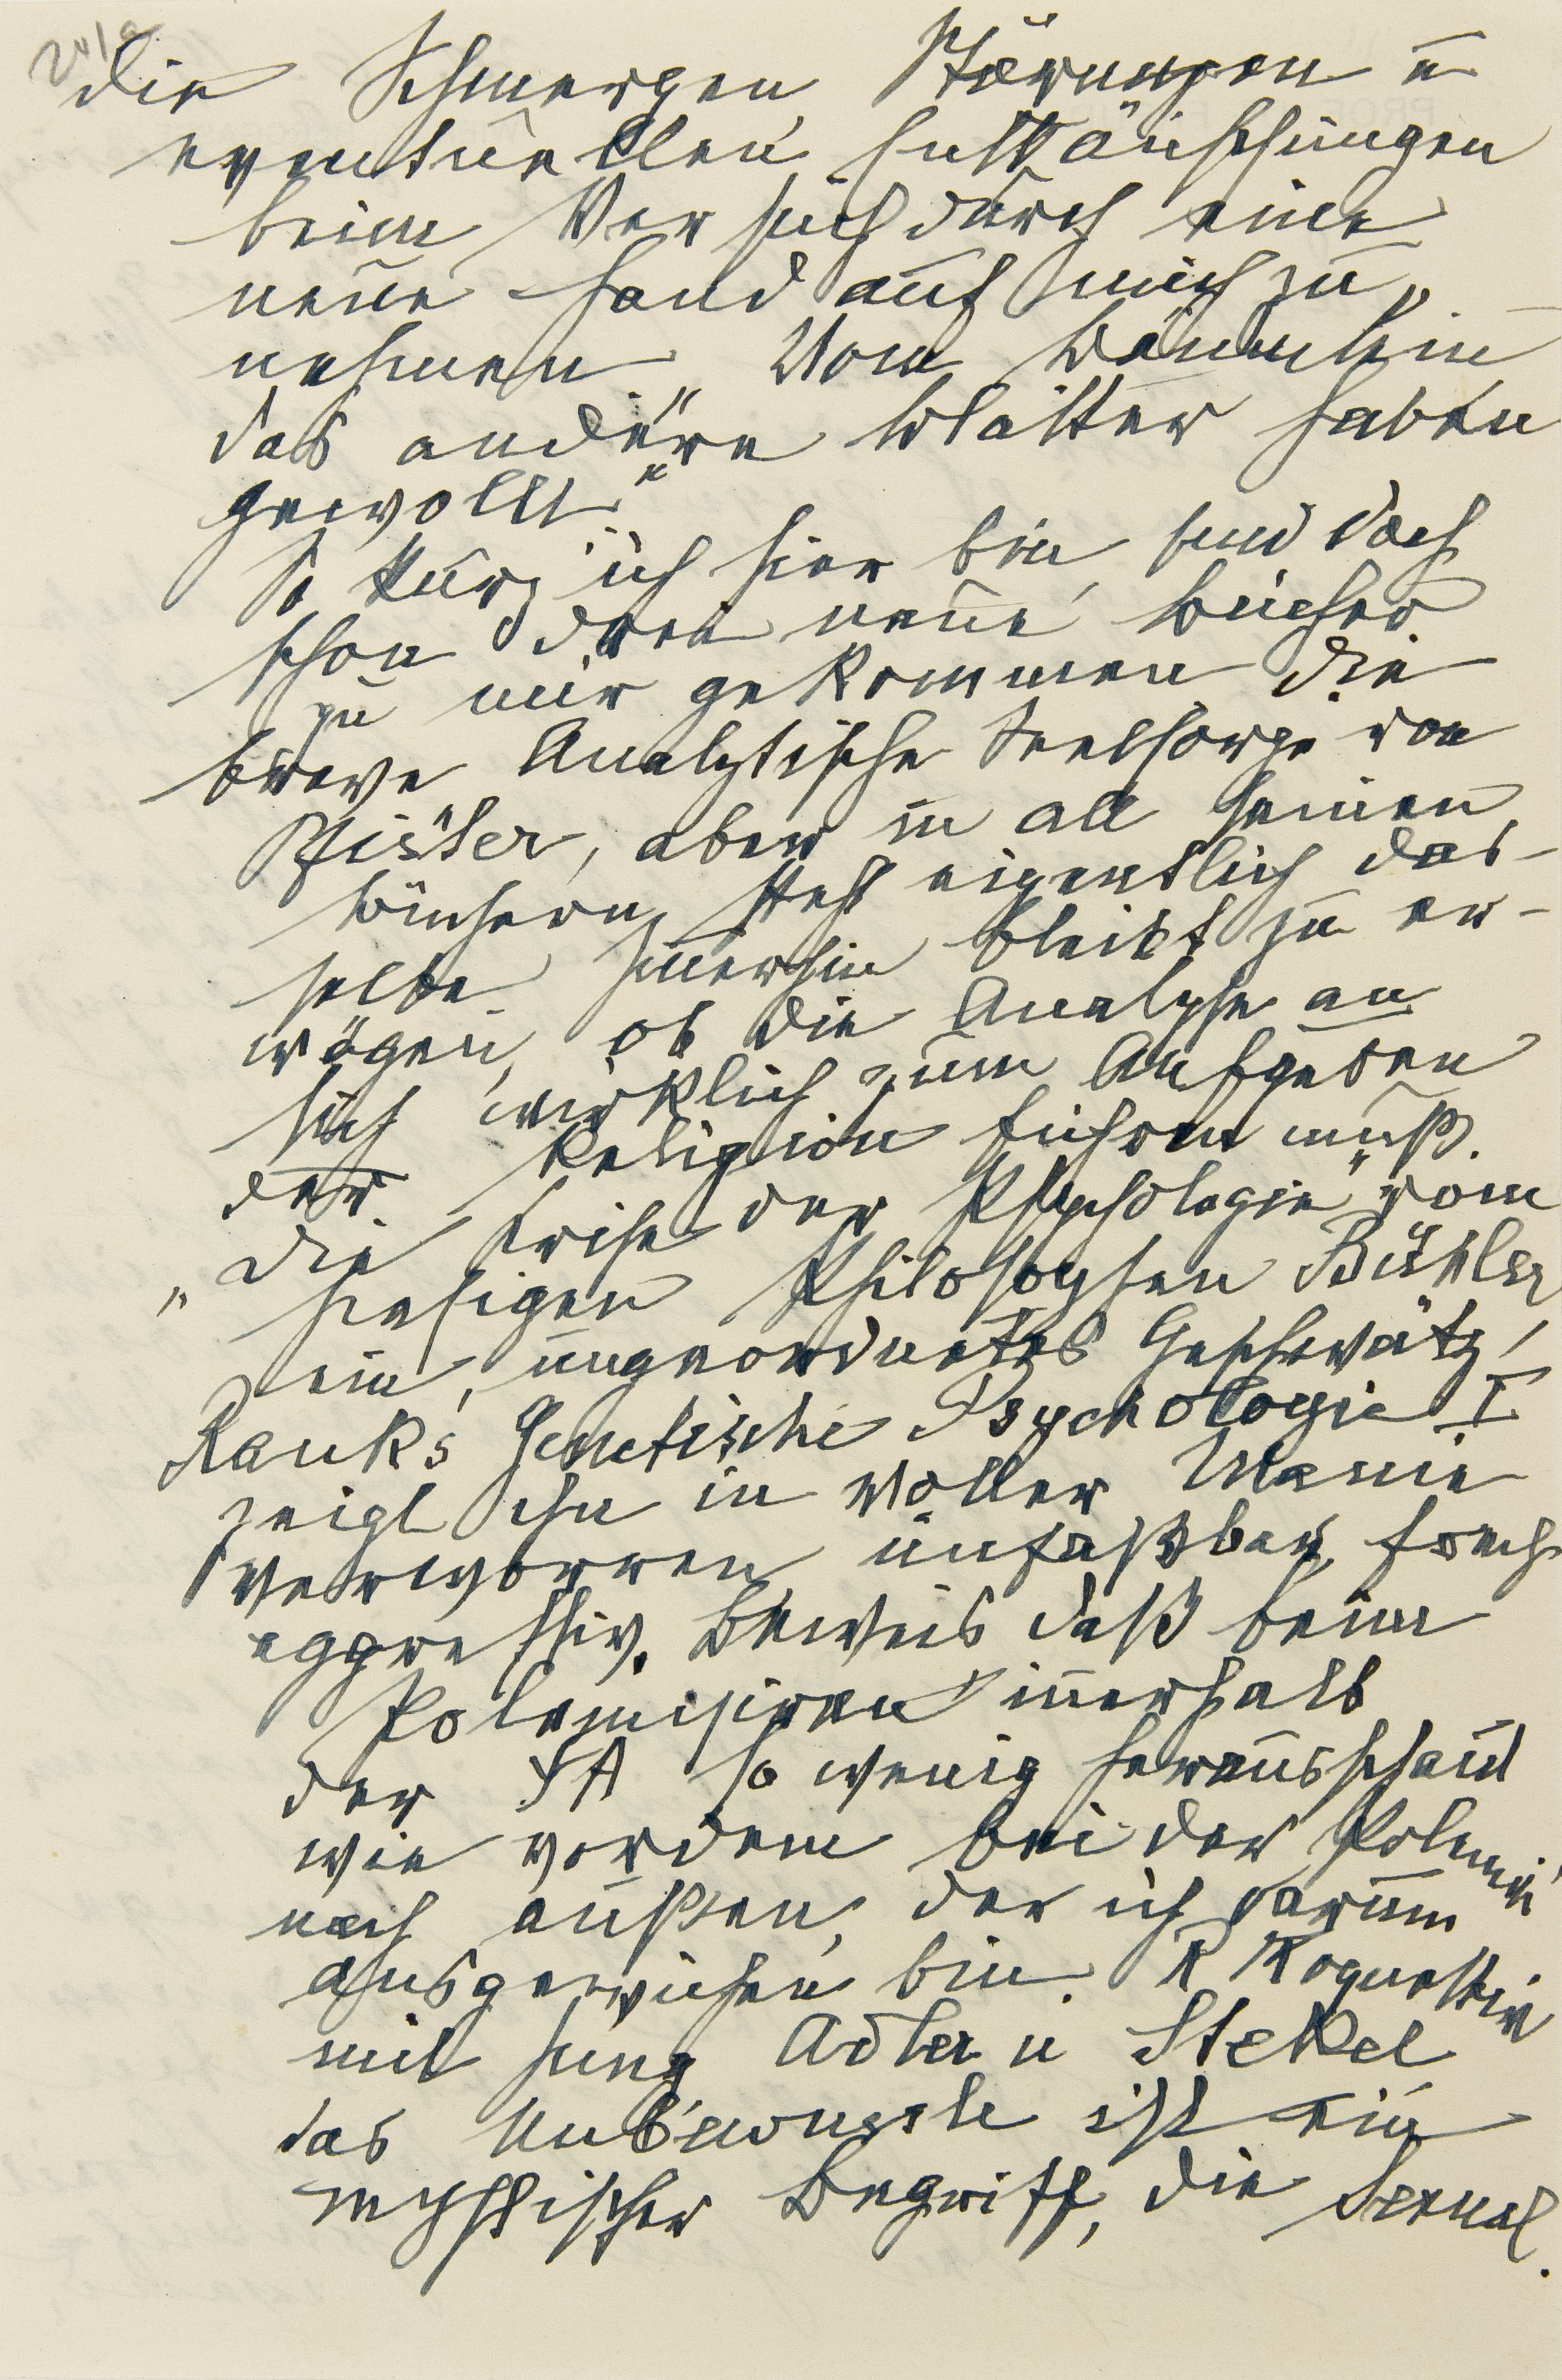 24/a
die Schmerzen Störungen u
eventuellen Enttäuschungen
beim Versuch durch eine
neue Hand auf mich zu
nehmen. Vom „Bäumlein
das andere Blätter haben
gewollt“
So kurz ich hier bin, sind doch
schon drei neue Bücher
zu mir gekommen die
brave Analytische Seelsorge von
Pfister, aber in all seinen
Büchern steht eigentlich das-
selbe immerhin bleibt zu er-
wägen, ob die Analyse an
sich wirklich zum Aufgeben
der Religion führen muß.
„Die Krise der Psychologie“ vom
hiesigen Philosophen Bühler
ein ungeordnetes Geschwätz!
Rank's Genetische Psychologie I
zeigt ihn in voller Manie
verworren unfaßbar, frech
aggressiv. Beweis daß beim
Polemisiren innerhalb
der ΨA so wenig herausschaut
wie vordem bei der Polemik
nach außen, der ich darum
ausgewichen bin. R koquettirt
mit Jung Adler u Stekel
das Unbewusste ist ein
mystischer Begriff, die Sexual.